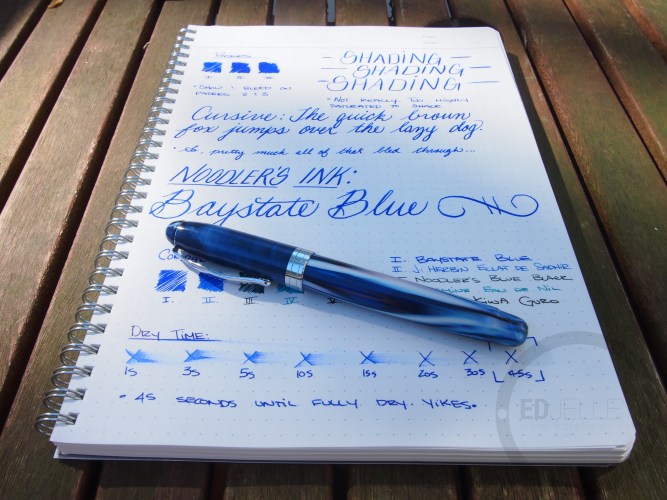 PASSES
– SHADING –
SHADING –
– SHADING –
I. II. III.
PASSES 2 & 3
* NOT REALLY. TOO HIGHLY
SATURATED TO SHADE
Cursive: The quick brown
fox jumps over the lazy dog.
pretty much all of that bled through...
NOODLER'S INK:
Baystate Blue
I. BAYSTATE BLUE
II. J. HERBIN ECLAT DE SAPHIR
NOODLER'S BLUE BLACK
EAU DE NIL
KIWA GURO
I. II.
DRY TIME:
X X X X X X X X
1s 3s 5s 10s 15s 20s 30s 45s
• 45 SECONDS UNTIL FULLY DRY. YIKES.
EDJELLEY